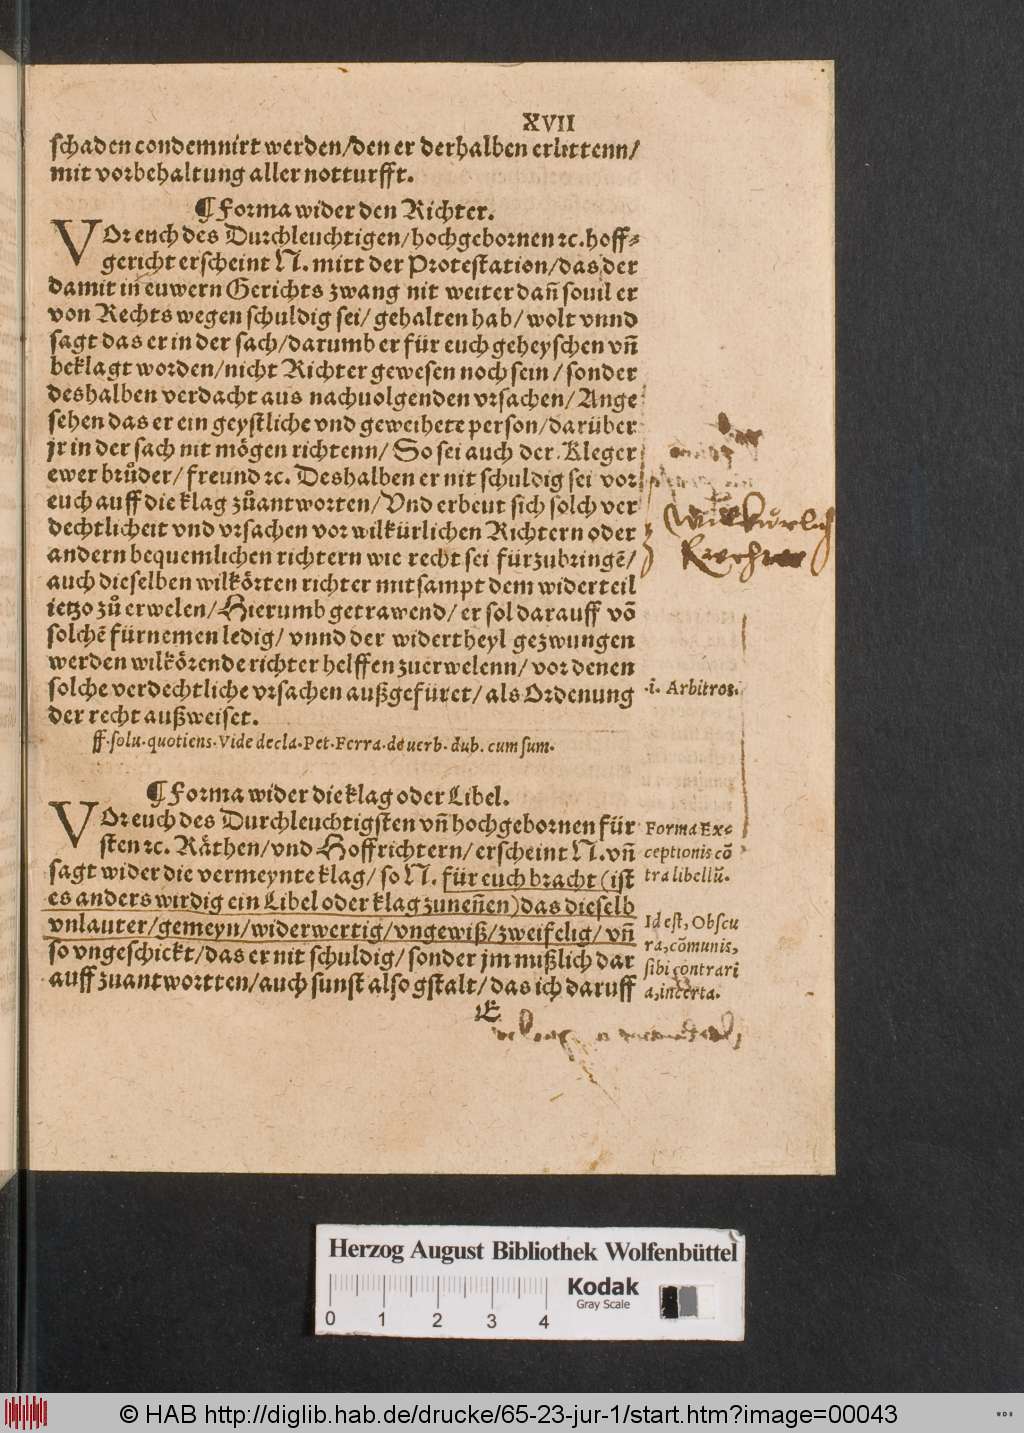 XVII
schaden condemnirt werden/den er derhalben erlittenn/
mit vorbehaltung aller notturfft.
¶ Forma wider den Richter.
VOr euch des Durchleuchtigen/hochgebornen ꝛc. hoff⸗
gericht erscheint N. mitt der Protestation/das der
damit in euwern Gerichts zwang nit weiter dañ souil er
von Rechts wegen schuldig sei/ gehalten hab/ wolt vnnd
sagt das er in der sach/darumb er für euch geheyschen vñ
beklagt worden/nicht Richter gewesen noch sein/ sonder
deshalben verdacht aus nachuolgenden vrsachen/ Ange
sehen das er ein geystliche vnd geweihete person/darüber
jr in der sach nit mögen richtenn/ So sei auch der Kleger
ewer brůder/ freund ꝛc. Deshalben er nit schuldig sei vor
euch auff die klag zůantworten/Vnd erbeut sich solch ver
dechtlicheit vnd vrsachen vor wilkürlichen Richtern oder
andern bequemlichen richtern wie recht sei fürzubringē/
auch dieselben wilkörten richter mitsampt dem widerteil
ietzo zů erwelen/Hierumb getrawend/ er sol darauff vō
solchē fürnemen ledig/ vnnd der widertheyl gezwungen
werden wilkörende richter helffen zuerwelenn/ vor denen
solche verdechtliche vrsachen außgefüret/ als Ordenung
der recht außweiset.
Willkürlich
.i. Arbitros.
ff. solu. quotiens. Vide decla. Pet. Ferra. de uerb. dub. cum sum.
¶ Forma wider die klag oder Libel.
VOr euch des Durchleuchtigsten vñ hochgebornen für
sten ꝛc. Räthen/vnd Hoffrichtern/ erscheint N. vñ
sagt wider die vermeynte klag/ so N. für euch bracht (ist
es anders wirdig ein Libel oder klag zuneñen) das dieselb
vnlauter/gemeyn/widerwertig/vngewiß/zweifelig/ vñ
so vngeschickt/das er nit schuldig/ sonder jm mißlich dar
auff zuantwortten/auch sunst also gstalt/ das ich daruff
Forma Ex⸗
ceptionis cō
tra libellū.
Id est, Obscu
ra, cōmunis,
sibi contrari
a, incerta.
E
Herzog August Bibliothek Wolfenbüttel
Kodak
Gray Scale
0 1 2 3 4
© HAB http://diglib.hab.de/drucke/65-23-jur-1/start.htm?image=00043